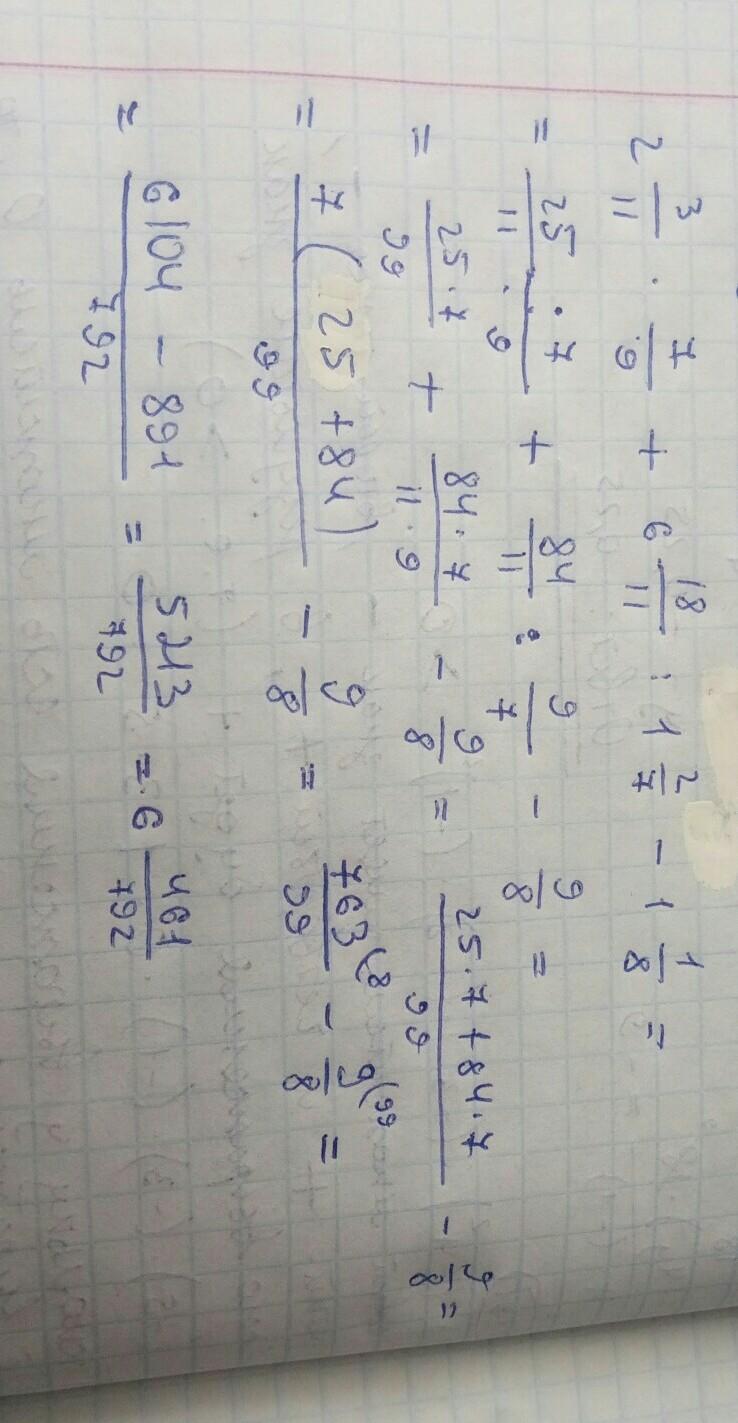 2 3/11 · 7/9 + 6 18/11 : 1 2/7 - 1 1/8 =
= 25 · 7/11 · 9 + 84/11 : 9/7 - 9/8 =
= 25·7/99 + 84·7/11·9 - 9/8 = 25·7+84·7/99 - 9/8 =
= 7(25+84)/99 - 9/8 = 763(8/99 - 9(99/8 =
= 6104 - 891/792 = 5213/792 = 6 461/792